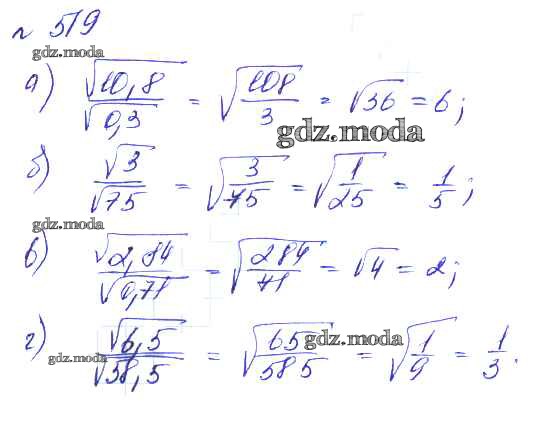 № 519
gdz.moda
а) √10,8 / √0,3 = √(108/3) = √36 = 6;
gdz.moda
б) √3 / √75 = √(3/75) = √(1/25) = 1/5;
gdz.moda
в) √2,84 / √0,71 = √(284/71) = √4 = 2;
г) √6,5 / √58,5 = √(65/585) = √(1/9) = 1/3.
gdz.moda
gdz.moda